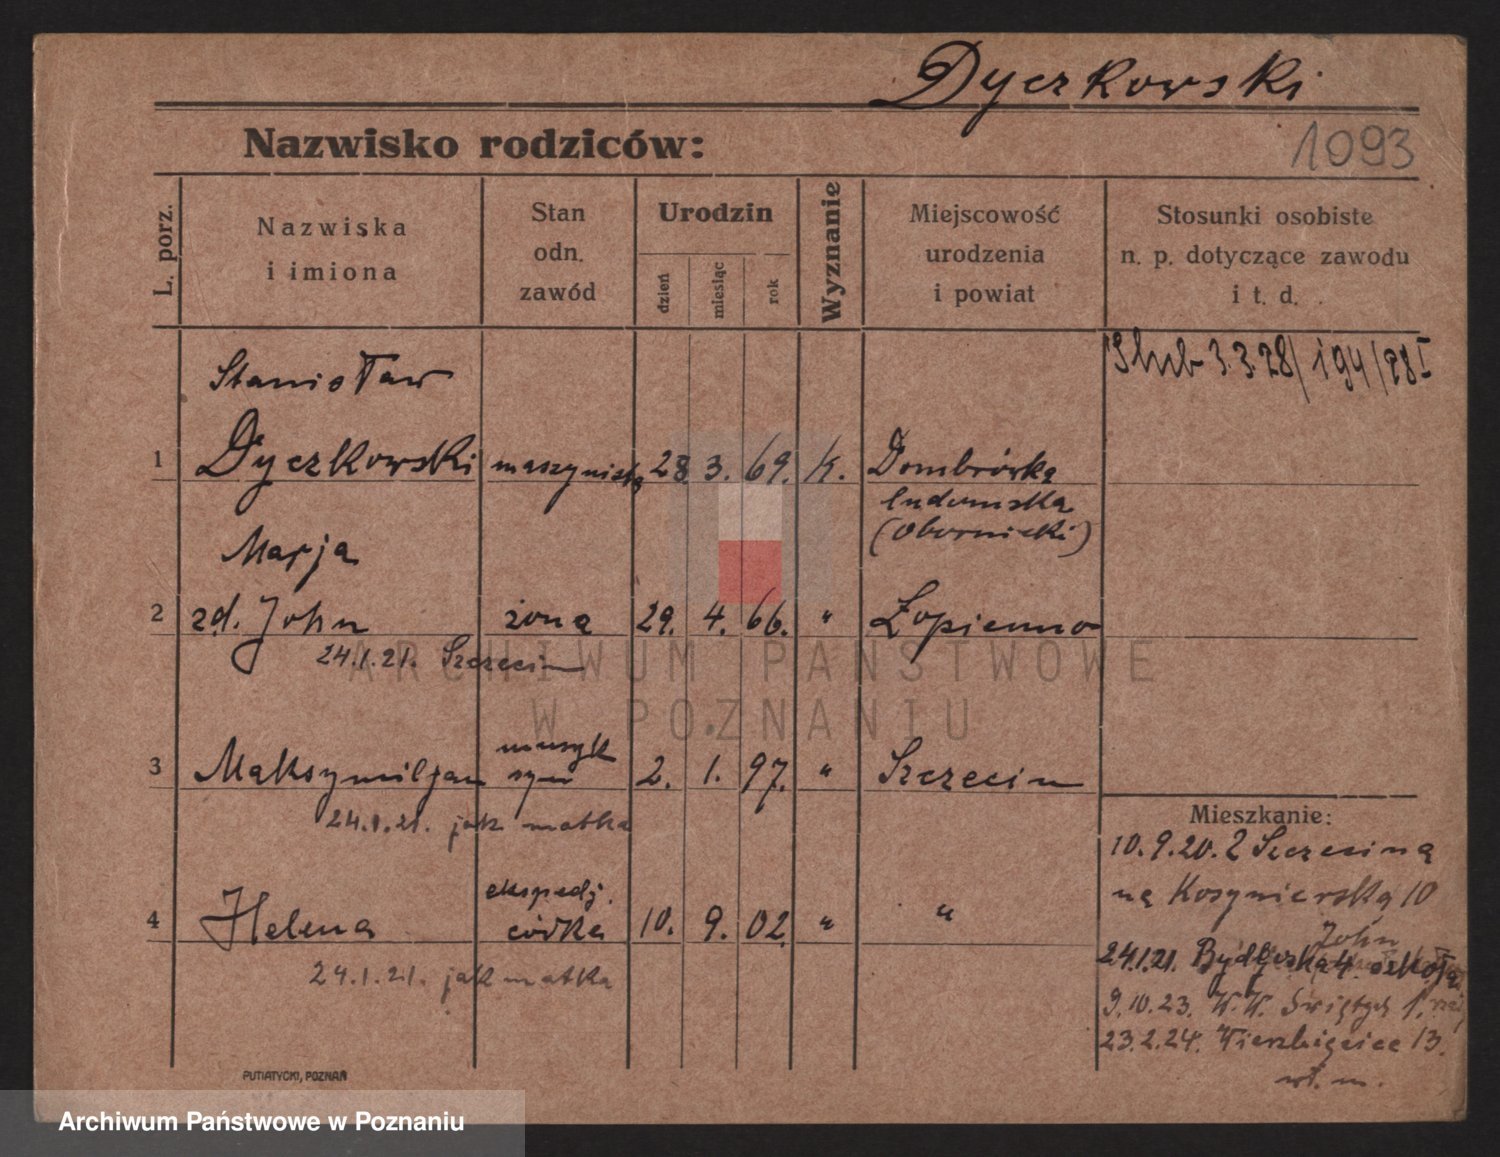 Dyczkowski
Nazwisko rodziców:
1093
L. porz.
Nazwiska
i imiona
Stan
odn.
zawód
Urodzin
dzień
miesiąc
rok
Wyznanie
Miejscowość
urodzenia
i powiat
Stosunki osobiste
n. p. dotyczące zawodu
i t. d.
Ślub 3.3.28/194/28 I
Stanisław
1 Dyczkowski maszynista 28. 3. 69. k. Dombrówka
ludomska
(Obornicki)
Marja
2 zd. John żona 29. 4. 66. " Łopienno
24.1.21. Szczecin
muzyk
3 Maksymiljan syn 2. 1. 97. " Szczecin
24.1.21. jak matka
Mieszkanie:
10.9.20. Z Szczecina
na Kosynierską 10
ekspedj.
4 Helena córka 10. 9. 02. " "
John
24.1.21. Bydgoska 4. szkoła
24.1.21. jak matka
9.10.23. W.W. Świętych 1.
23.2.24. Wierzbięcice 13.
wł. m.
PUTIATYCKI, POZNAŃ
ARCHIWUM PAŃSTWOWE
W POZNANIU
Archiwum Państwowe w Poznaniu